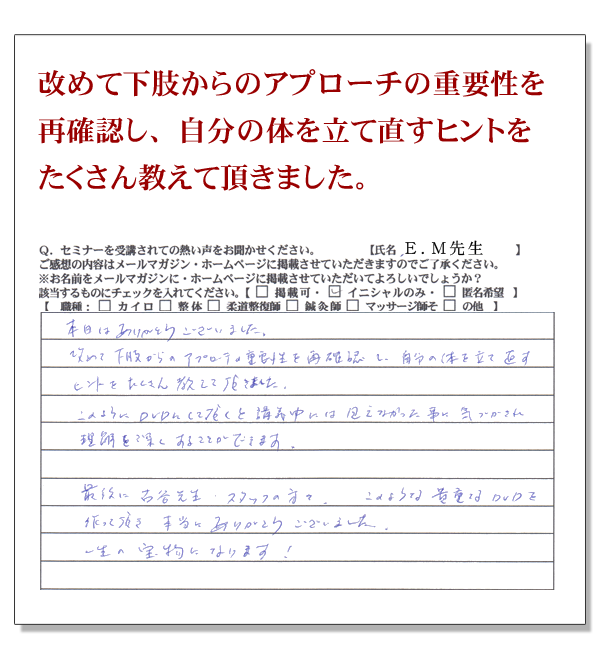 改めて下肢からのアプローチの重要性を
再確認し、自分の体を立て直すヒントを
たくさん教えて頂きました。
Q．セミナーを受講されての熱い声をお聞かせください。　【氏名 E．M先生　】
ご感想の内容はメールマガジン・ホームページに掲載させていただきますのでご了承ください。
※お名前をメールマガジンに・ホームページに掲載させていただいてよろしいでしょうか？
該当するものにチェックを入れてください。【 □ 掲載可・ ☑ イニシャルのみ・ □ 匿名希望 】
【 職種： □ カイロ □ 整体 □ 柔道整復師 □ 鍼灸師 □ マッサージ師そ □ の他 】
本日はありがとうございました。
改めて下肢からのアプローチの重要性を再確認し、自分の体を立て直す
ヒントをたくさん教えて頂きました。
このようにDVDにして頂くと講義中には見えなかった事に気づかされ
理解を深くすることができます。
最後に古谷先生・スタッフの方々、このような貴重なDVDを
作って頂き本当にありがとうございました。
一生の宝物になります！